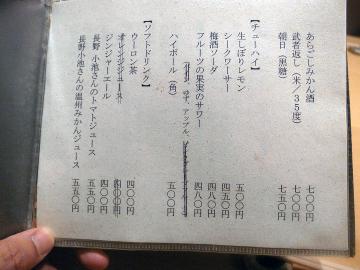 あらごしみかん酒 七〇〇円
武者返し（米／３５度） 七〇〇円
朝日（黒糖） 七五〇円
【チューハイ】
生しぼりレモン 五〇〇円
シークワーサー 四五〇円
梅酒ソーダ 四八〇円
フルーツの果実のサワー 四八〇円
ゆず、アップル、
ハイボール（角） 五〇〇円
【ソフトドリンク】
ウーロン茶 四〇〇円
オレンジジュース 四〇〇円
ジンジャーエール 四〇〇円
長野 小池さんのトマトジュース 五五〇円
長野小池さんの温州みかんジュース 五五〇円